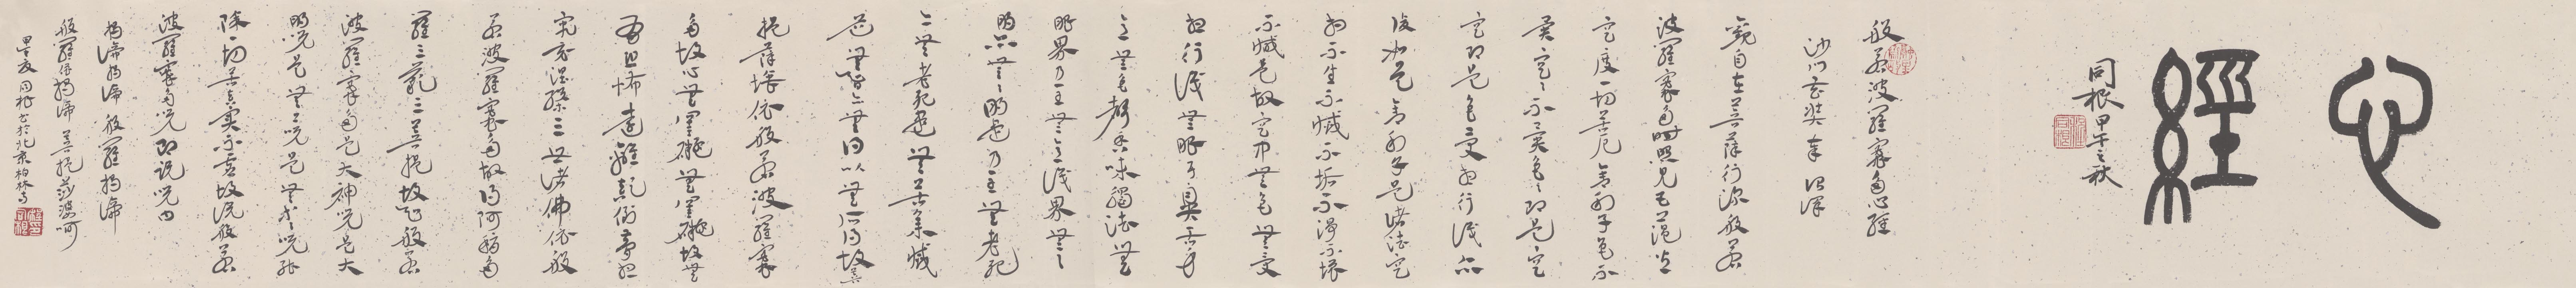 心經
同根甲午之秋
般若波羅蜜多心經
沙門玄奘奉詔譯
觀自在菩薩行深般若
波羅蜜多時照見五蘊皆
空度一切苦厄舍利子色不
異空空不異色色即是空
空即是色受想行識亦
復如是舍利子是諸法空
相不生不滅不垢不淨不增
不減是故空中無色無受
想行識無眼耳鼻舌身
意無色聲香味觸法無
眼界乃至無意識界無無
明亦無無明盡乃至無老死
亦無老死盡無苦集滅
道無智亦無得以無所得故菩
提薩埵依般若波羅蜜
多故心無罣礙無罣礙故無
有恐怖遠離顛倒夢想
究竟涅槃三世諸佛依般
若波羅蜜多故得阿耨多
羅三藐三菩提故知般若
波羅蜜多是大神咒是大
明咒是無上咒是無等等咒能
除一切苦真實不虛故說般若
波羅蜜多咒即說咒曰
揭諦揭諦 般羅揭諦
般羅僧揭諦 菩提莎婆訶
甲午夏同根書於北京柏林寺